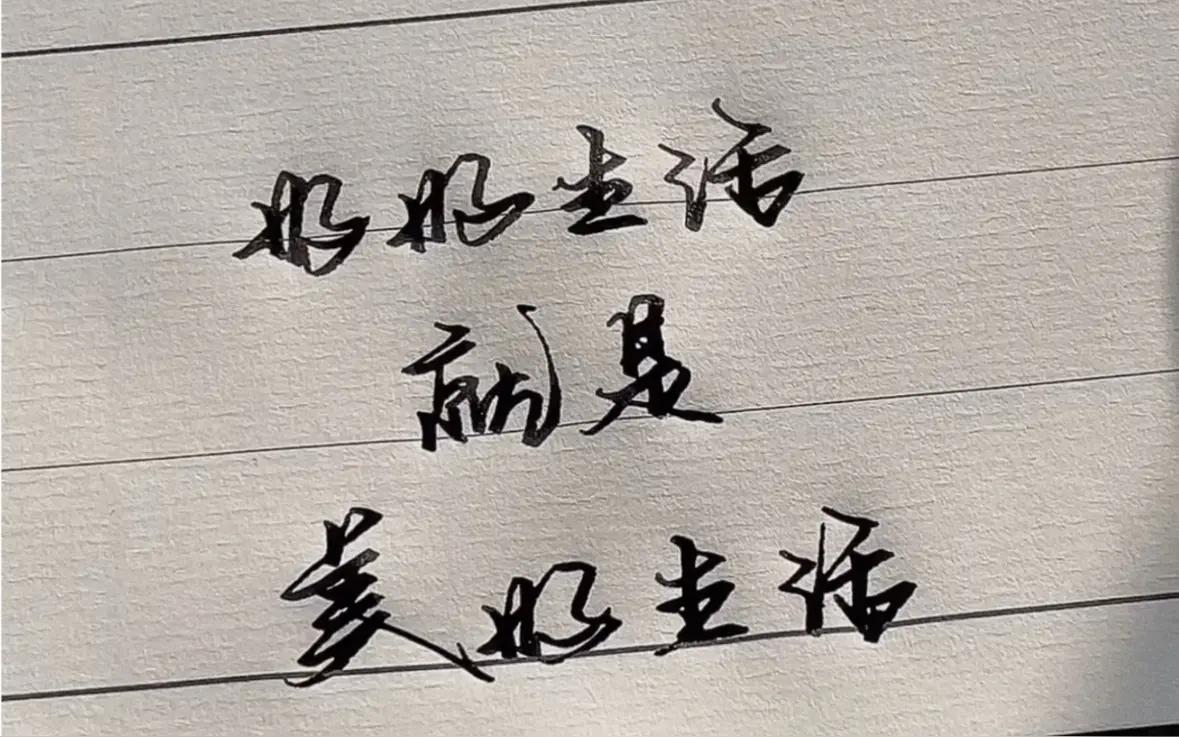 好好生活
就是
美好生活